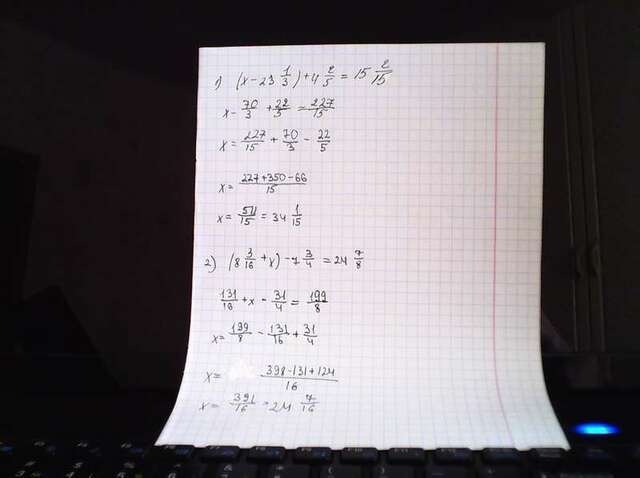 1) (x-23 1/3)+4 2/5=15 2/15
x-70/3+22/5=227/15
x=227/15+70/3-22/5
x=227+350-66/15
x=511/15=34 1/15
2) (8 3/16+x)-7 3/4=24 7/8
131/16+x-31/4=199/8
x=199/8-131/16+31/4
x=398-131+124/16
x=391/16=24 7/16